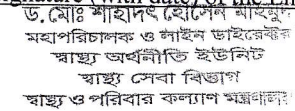 Signature (with date) of the En
ড. মোঃ শাহাদৎ হোসেন মাহমুদ
মহাপরিচালক ও লাইন ডাইরেক্টর
স্বাস্থ্য অর্থনীতি ইউনিট
স্বাস্থ্য সেবা বিভাগ
স্বাস্থ্য ও পরিবার কল্যাণ মন্ত্রণালয়